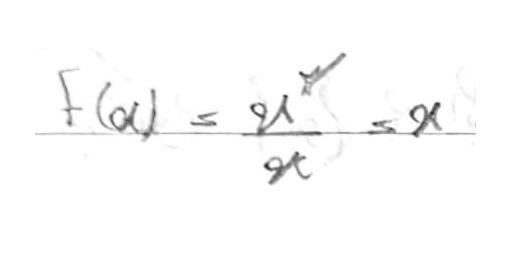 f(x) = x² / x = x